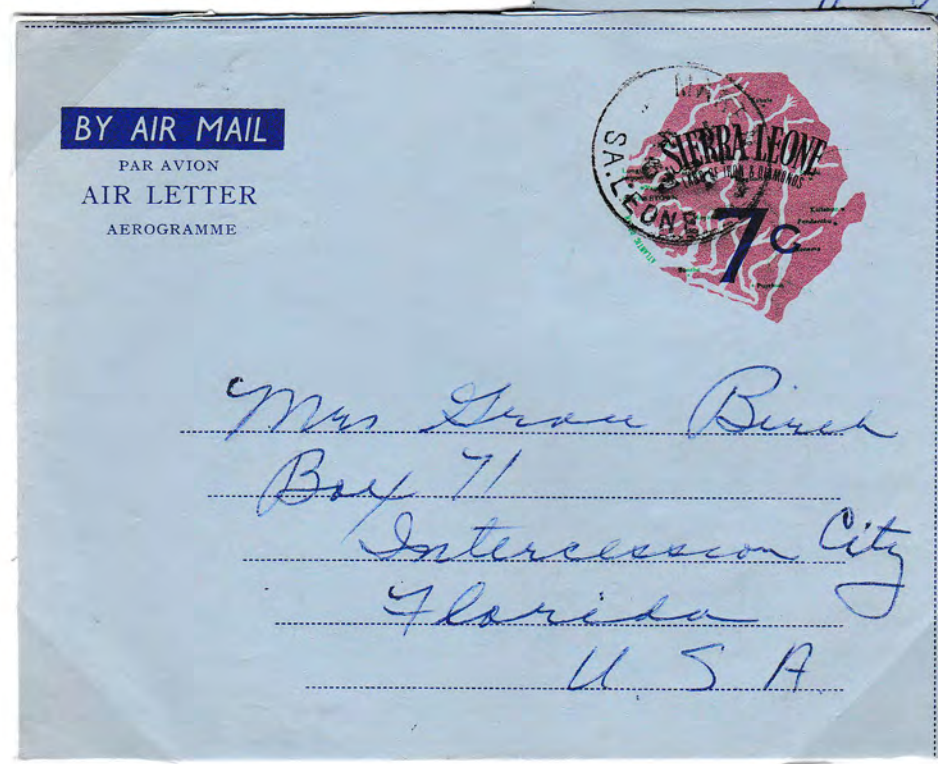 BY AIR MAIL
PAR AVION
AIR LETTER
AEROGRAMME
SIERRA LEONE
LAND OF IRON & DIAMONDS
7c
SA. LEONE
ATLANTIC
Mrs Grace Birch
Box 71
Intercession City
Florida
U S A